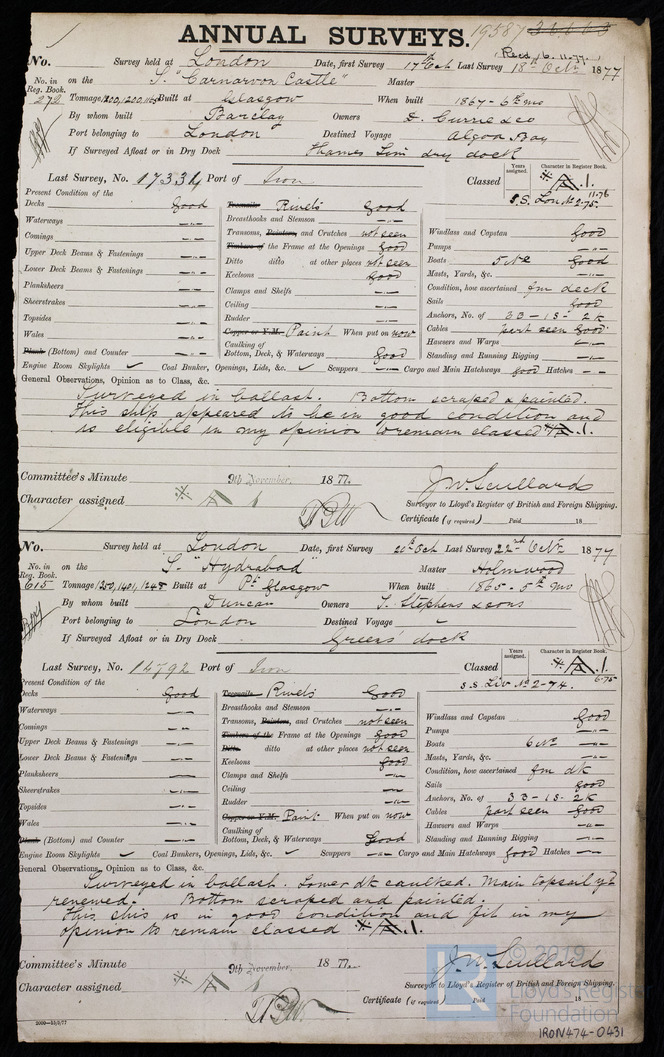 ANNUAL SURVEYS. 19587
Recd 16.11.77
No. Survey held at London Date, first Survey 17th Oct Last Survey 18th Octr 1877
No. in Reg. Book. on the S. "Carnarvon Castle" Master
272 Tonnage 1200, 1200, Built at Glasgow When built 1867 - 6th mo
By whom built Barclay Owners D. Currie & Co
Port belonging to London Destined Voyage Algoa Bay
If Surveyed Afloat or in Dry Dock Thames dry dock
Last Survey, No. 17334 Port of Iron Classed Years assigned. Character in Register Book. A.1. 11.76
S.S. Lon. No 2-75.
Present Condition of the
Decks Good
Waterways —"—
Comings —"—
Upper Deck Beams & Fastenings —"—
Lower Deck Beams & Fastenings —"—
Planksheers —"—
Sheerstrakes —"—
Topsides —"—
Wales —"—
Plank (Bottom) and Counter —"—
Treenails Rivets Good
Breasthooks and Stemson —"—
Transoms, Pointers, and Crutches not seen
Timbers of the Frame at the Openings Good
Ditto ditto at other places not seen
Keelsons Good
Clamps and Shelfs —"—
Ceiling —"—
Rudder —"—
Copper or Y.M. Paint When put on now
Caulking of Bottom, Deck, & Waterways Good
Windlass and Capstan Good
Pumps —"—
Boats 5 No Good
Masts, Yards, &c. —"—
Condition, how ascertained fm deck
Sails Good
Anchors, No. of 3B - 1S - 2K
Cables part seen Good
Hawsers and Warps —"—
Standing and Running Rigging —"—
Engine Room Skylights ✓ Coal Bunker, Openings, Lids, &c. ✓ Scuppers —"— Cargo and Main Hatchways Good Hatches —"—
General Observations, Opinion as to Class, &c.
Surveyed in ballast. Bottom scraped & painted.
This ship appeared to be in good condition and
is eligible in my opinion to remain classed A.1.
Committee's Minute 9th November, 1877.
Character assigned A 1
J.W. Scullard
Surveyor to Lloyd's Register of British and Foreign Shipping.
Certificate (if required) Paid 18
No. Survey held at London Date, first Survey 20th Oct Last Survey 22nd Octr 1877
No. in Reg. Book. on the S. "Hydrabad" Master Holmwood
615 Tonnage 1350, 1401, 1248 Built at Pt Glasgow When built 1865 - 5th mo
By whom built Duncan Owners S. Stephens & Sons
Port belonging to London Destined Voyage
If Surveyed Afloat or in Dry Dock Greens' dock
Last Survey, No. 14792 Port of Iron Classed Years assigned. Character in Register Book. A.1. 6.75
S.S. Liv No 2-74.
Present Condition of the
Decks Good
Waterways —"—
Comings —"—
Upper Deck Beams & Fastenings —"—
Lower Deck Beams & Fastenings —"—
Planksheers —
Sheerstrakes —"—
Topsides —"—
Wales —"—
Plank (Bottom) and Counter —"—
Treenails Rivets Good
Breasthooks and Stemson —"—
Transoms, Pointers, and Crutches not seen
Timbers of the Frame at the Openings Good
Ditto ditto at other places not seen
Keelsons Good
Clamps and Shelfs —"—
Ceiling —"—
Rudder —"—
Copper or Y.M. Paint When put on now
Caulking of Bottom, Deck, & Waterways Good
Windlass and Capstan Good
Pumps —"—
Boats 6 No —"—
Masts, Yards, &c. —"—
Condition, how ascertained fm dk
Sails Good
Anchors, No. of 3B - 1S. 2K
Cables part seen Good
Hawsers and Warps —"—
Standing and Running Rigging —"—
Engine Room Skylights ✓ Coal Bunkers, Openings, Lids, &c. ✓ Scuppers —"— Cargo and Main Hatchways Good Hatches —"—
General Observations, Opinion as to Class, &c.
Surveyed in ballast. Lower dk caulked. Main topsail yd
renewed. Bottom scraped and painted.
This ship is in good condition and fit in my
opinion to remain classed A.1.
Committee's Minute 9th November, 1877.
Character assigned A 1
J.W. Scullard
Surveyor to Lloyd's Register of British and Foreign Shipping.
Certificate (if required) Paid 18
2000—15/2/77
© 2019
Lloyd's Register
Foundation
IRON474-0431